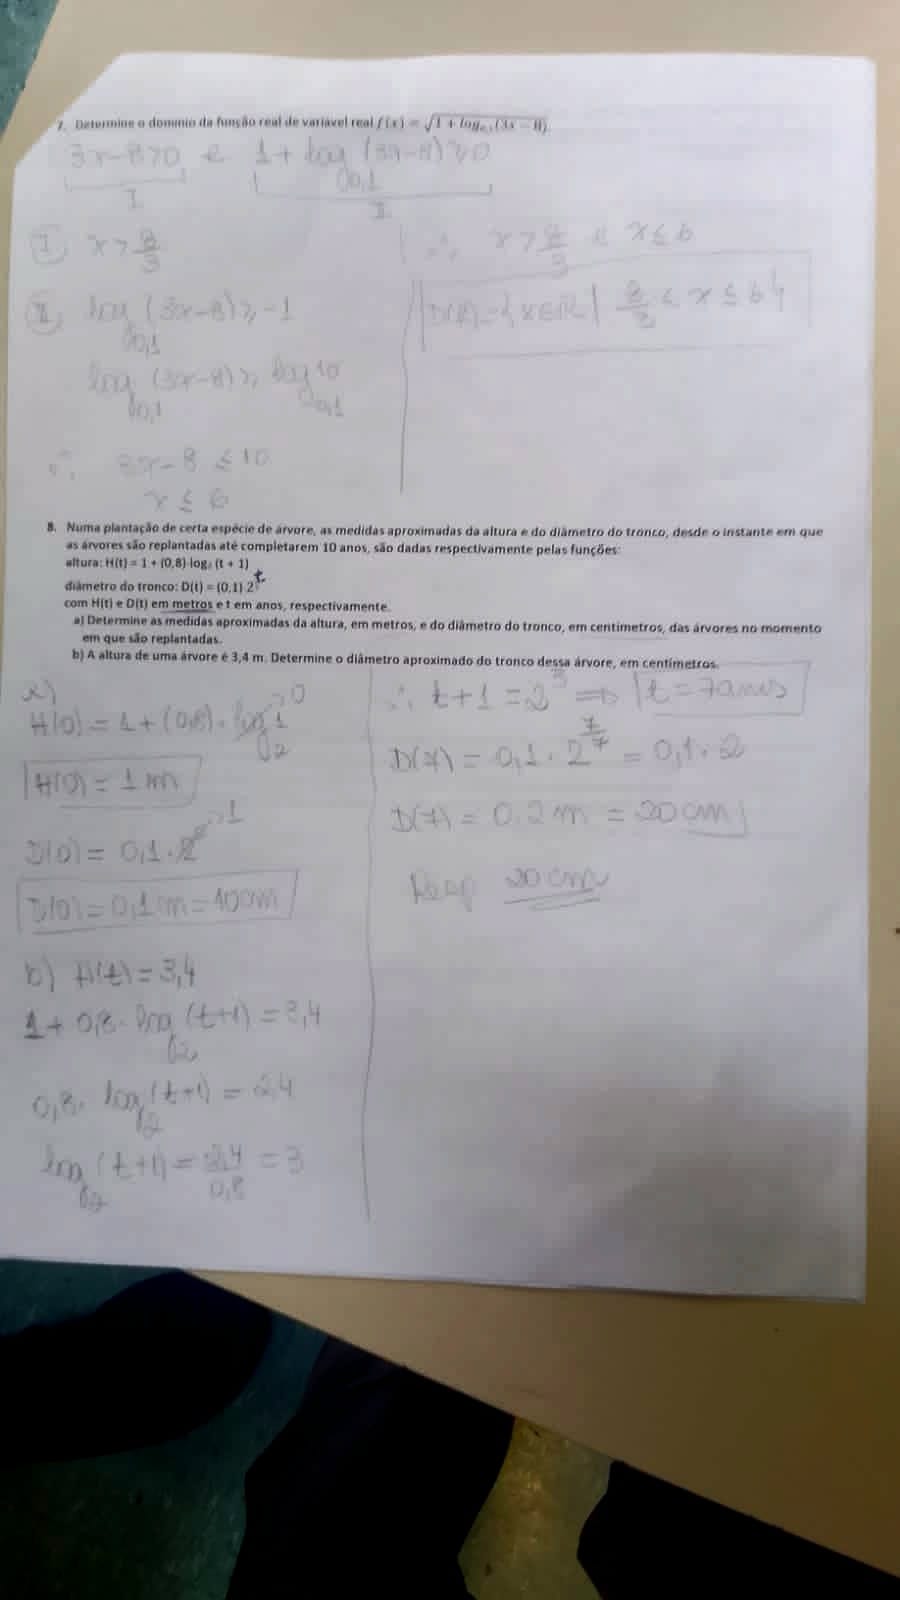 7. Determine o domínio da função real de variável real f(x) = √(1 + log₀,₁(3x − 8)).
3x-8>0 e 1 + log₀,₁(3x-8) ≥ 0
I
II
I x > 8/3
II log₀,₁(3x-8) ≥ -1
log₀,₁(3x-8) ≥ log₀,₁10
∴ 3x-8 ≤ 10
x ≤ 6
∴ x > 8/3 e x ≤ 6
D(f) = {x∈R | 8/3 < x ≤ 6}
8. Numa plantação de certa espécie de árvore, as medidas aproximadas da altura e do diâmetro do tronco, desde o instante em que
as árvores são replantadas até completarem 10 anos, são dadas respectivamente pelas funções:
altura: H(t) = 1 + (0,8)·log₂ (t + 1)
diâmetro do tronco: D(t) = (0,1)·2
com H(t) e D(t) em metros e t em anos, respectivamente.
a) Determine as medidas aproximadas da altura, em metros, e do diâmetro do tronco, em centímetros, das árvores no momento
em que são replantadas.
b) A altura de uma árvore é 3,4 m. Determine o diâmetro aproximado do tronco dessa árvore, em centímetros.
a)
H(0) = 1 + (0,8) · log₂1 → 0
H(0) = 1 m
D(0) = 0,1 · 2⁰ → 1
D(0) = 0,1 m = 10 cm
b) H(t) = 3,4
1 + 0,8 · log₂(t+1) = 3,4
0,8 · log₂(t+1) = 2,4
log₂(t+1) = 2,4/0,8 = 3
∴ t+1 = 2³ ⇒ t = 7 anos
D(7) = 0,1 · 2^(7/7) = 0,1 · 2
D(7) = 0,2 m = 20 cm
Resp 20 cm